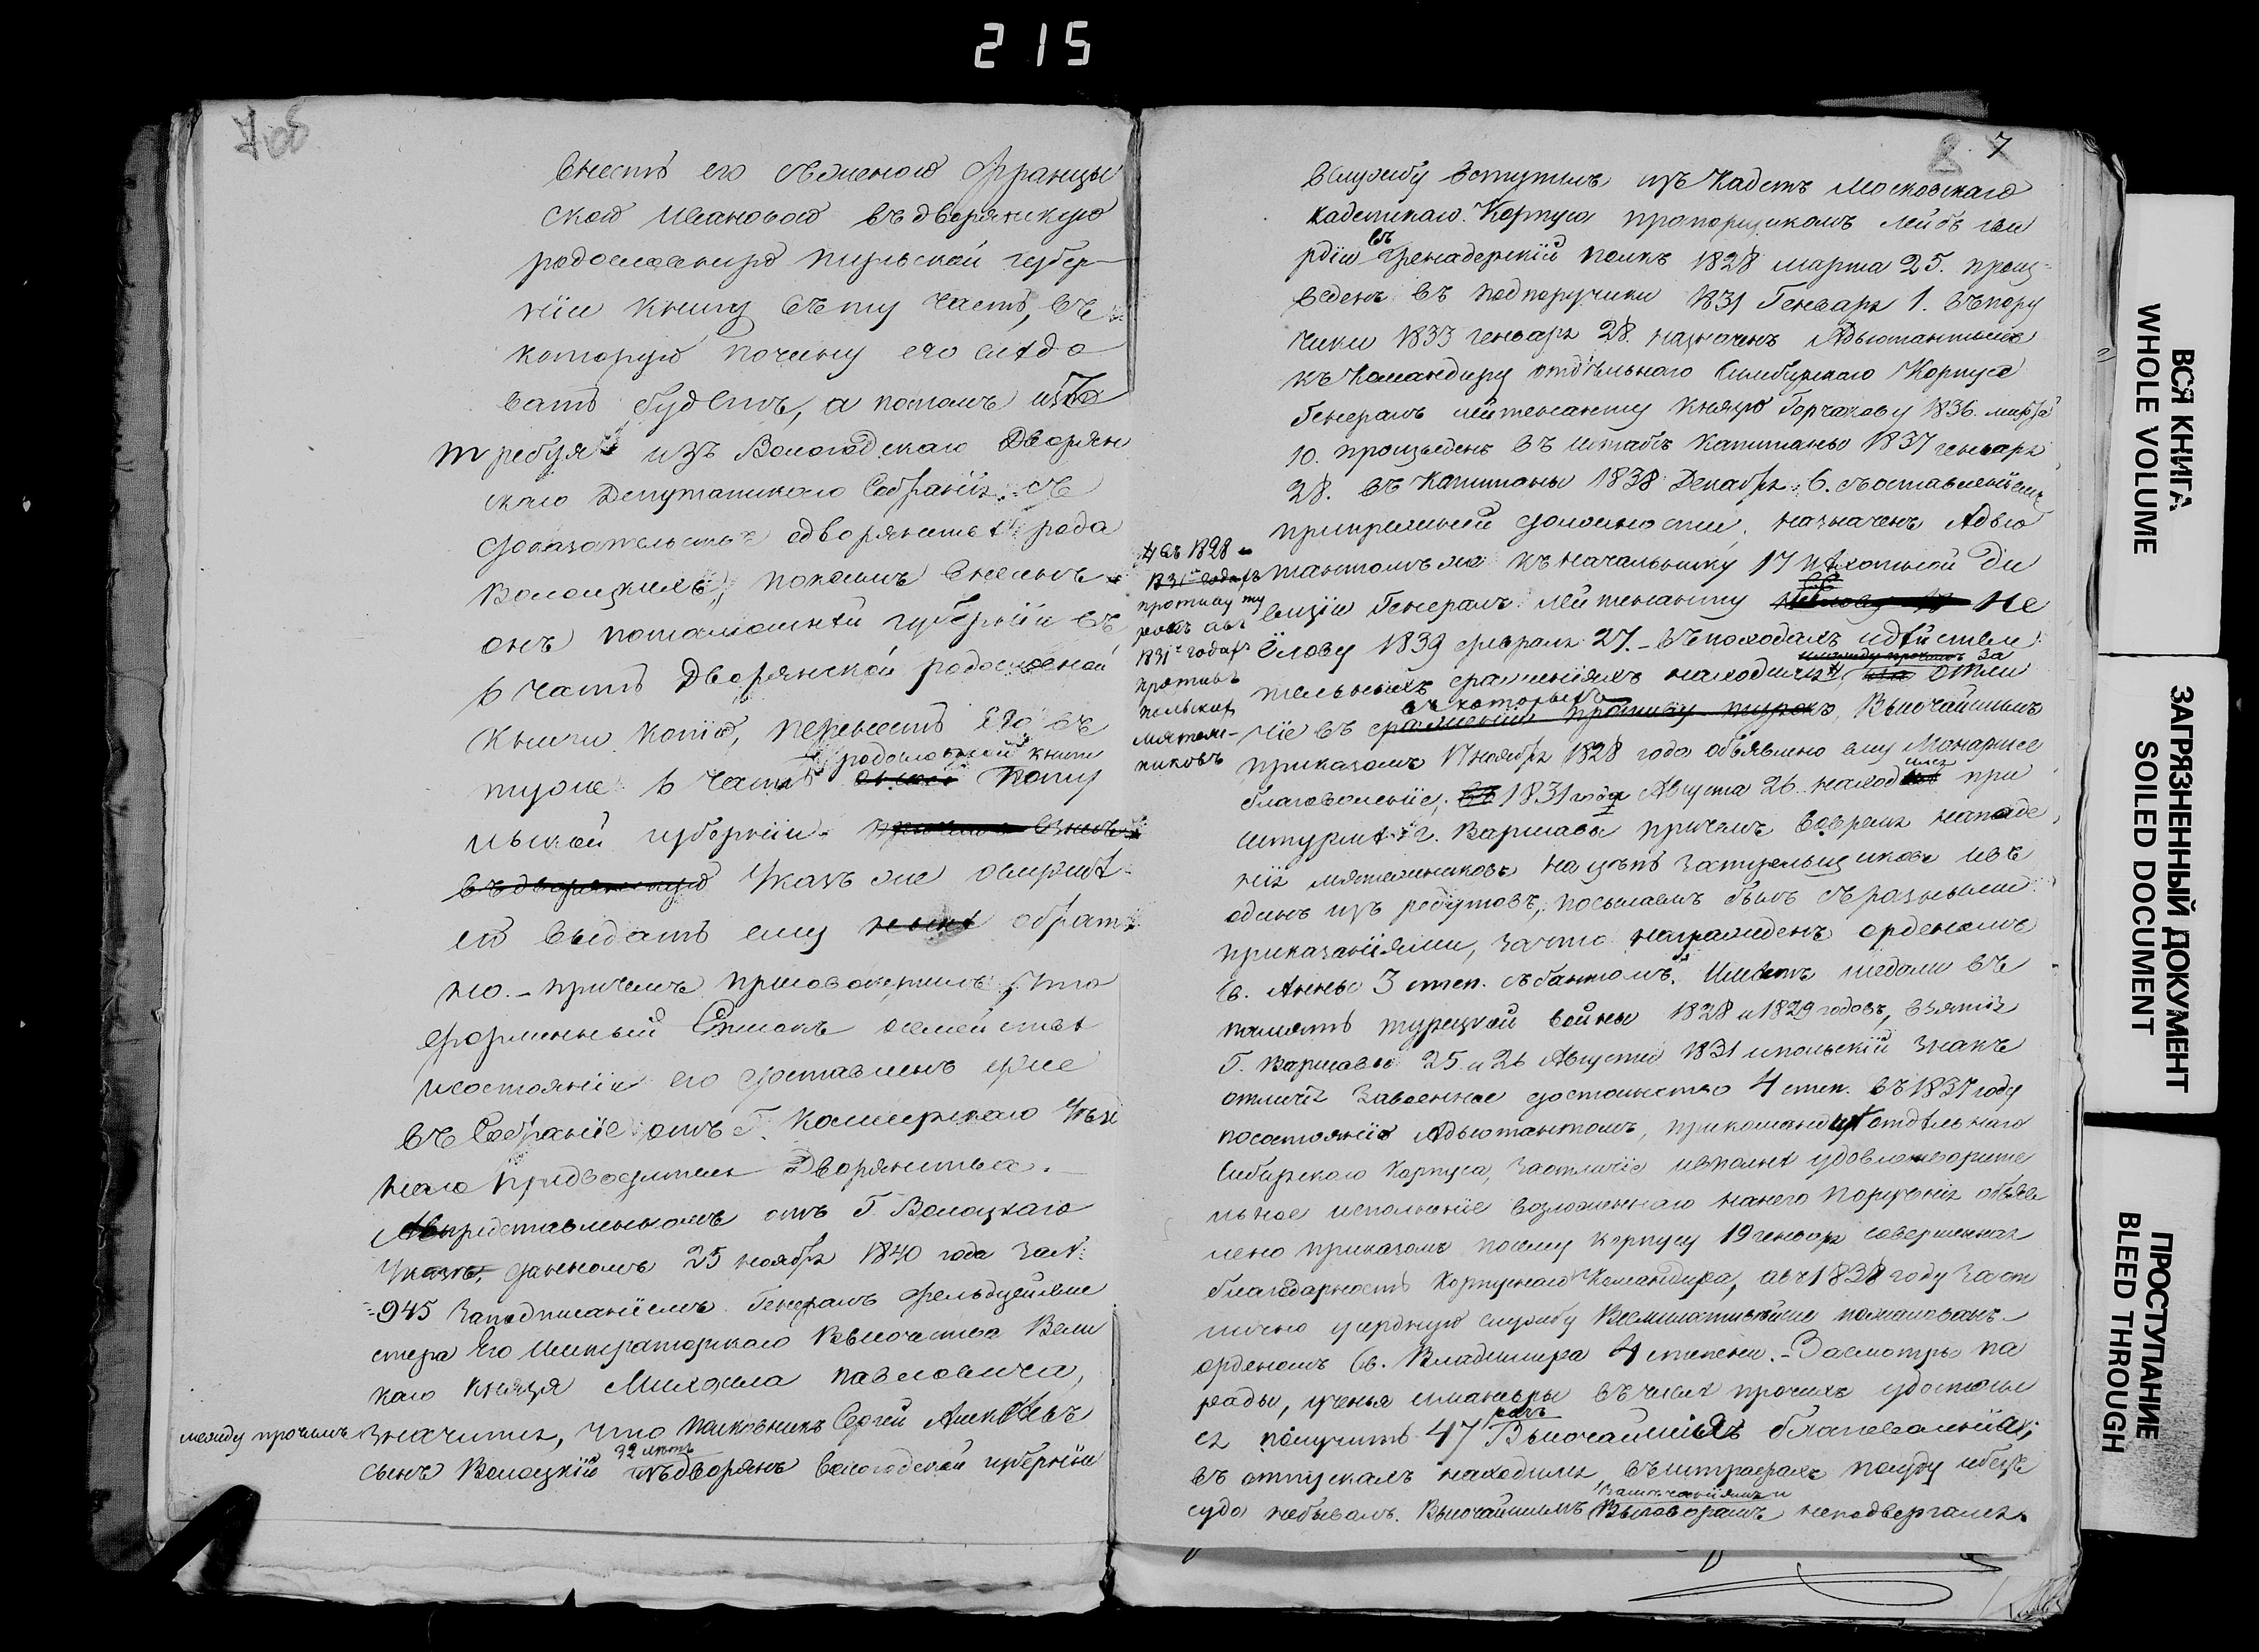 215
внесть его сженою Францы
ской Ивановой въ дворянскую
родословную Тульской губер-
ніи книгу въ ту часть, въ
которую почину его слѣдо
вать будетъ, а потомъ изъ
требуя изъ Вологодскаго Дворян
скаго Депутатскаго Собранія съ
доказательствъ одворянствѣ рода
Волоцкихъ,
онъ потамошней губерніи въ
6 часть Дворянской родословной
книги копію, перенесть его въ
родословной книги
туже 6 часть Тому
льской губерніи.
въ дворянскую Указъ же
ею выдать ему обрат
но. - причемъ присовокупилъ, что
форменный Списокъ осемействѣ
исостояніи его доставленъ уже
въ Собраніе отъ Г. Каширскаго Уѣзд
наго предводителя Дворянства.
представленномъ отъ Г. Волоцкаго
Указѣ, данномъ 25 ноября 1840 года за №
945 заподписаніемъ Генералъ Фельдцейхме
стера Его Императорскаго Высочества Вели
каго Князя Михаила Павловича,
между прочимъ значится, что Полковникъ Сергей Алексѣевъ
32 лѣтъ
сынъ Волоцкій изъ дворянъ Вологодской губерніи
7
вслужбу вступилъ изъ Кадетъ Московскаго
кадетскаго Корпуса прапорщикомъ Лейбъ гва
въ
рдіи Гренадерскій полкъ 1828 марта 25. произ-
веденъ въ подпоручики 1831 Генваря 1. въ пору
чики 1833 генваря 28. назначенъ Адьютантомъ
къ Командиру отдѣльнаго Сибирскаго Корпуса
Генералъ лейтенанту князю Горчакову 1836. марта
10. произведенъ въ Штабсъ Капитаны 1837 генваря
28. въ Капитаны 1838 Декабря 6. съ оставленіемъ
припрежней должности, назначенъ Адью
тантомъ же къ начальнику 17 пѣхотной Ди
визіи Генералъ Лейтенанту Не
ѣлову 1839 февраля 27. - въ походахъ идѣйстви
между прочимъ за
тельныхъ сраженіяхъ находился, отли
въ которыхъ
чіе въ сраженіи противу турокъ, Высочайшимъ
приказомъ 17 ноября 1828 года объявлено ему Монаршее
благоволеніе, 1831 года Августа 26 находился при
штурмѣ г. Варшавы причемъ вовремя нападе
нія мятежниковъ на цѣпь застрельщиковъ ивъ
одинъ изъ редутовъ, посылаемъ былъ съразными
приказаніями, зачто награжденъ орденомъ
Св. Анны 3 степ. съ бантомъ. Имѣетъ медали въ
память турецкой войны 1828 и 1829 годовъ, взятія
Г. Варшавы 25 и 26 Августа 1831 ипольскій знакъ
отличія Завоенное достоинство 4 степ. въ 1837 году
посостоянію Адьютантомъ, прикомандирѣ отдѣльнаго
Сибирскаго Корпуса, заотличіе ивполнѣ удовлетворите
льное исполненіе возложеннаго нанего порученія объяв
лено приказомъ посему корпусу 19 генваря совершенная
благодарность Корпуснаго Командира, а въ 1838 году заот
лично усердную службу Всемилостивѣйше пожалованъ
орденомъ Св. Владимира 4 степени. - Засмотры па
рады, ученья иманевры въ числѣ прочихъ удостоил
разъ
ся получить 47 Высочайшихъ благоволеній;
въ отпускахъ находился, въ штрафахъ посуду ибезъ
замѣчаніямъ и
суда небывалъ. Высочайшимъ Выговорамъ неподвергался.
# въ 1828
1831 года
противу ту
рокъ а въ
1831 году
противъ
польскихъ
мятеж-
никовъ
ВСЯ КНИГА
WHOLE VOLUME
ЗАГРЯЗНЕННЫЙ ДОКУМЕНТ
SOILED DOCUMENT
ПРОСТУПАНИЕ
BLEED THROUGH